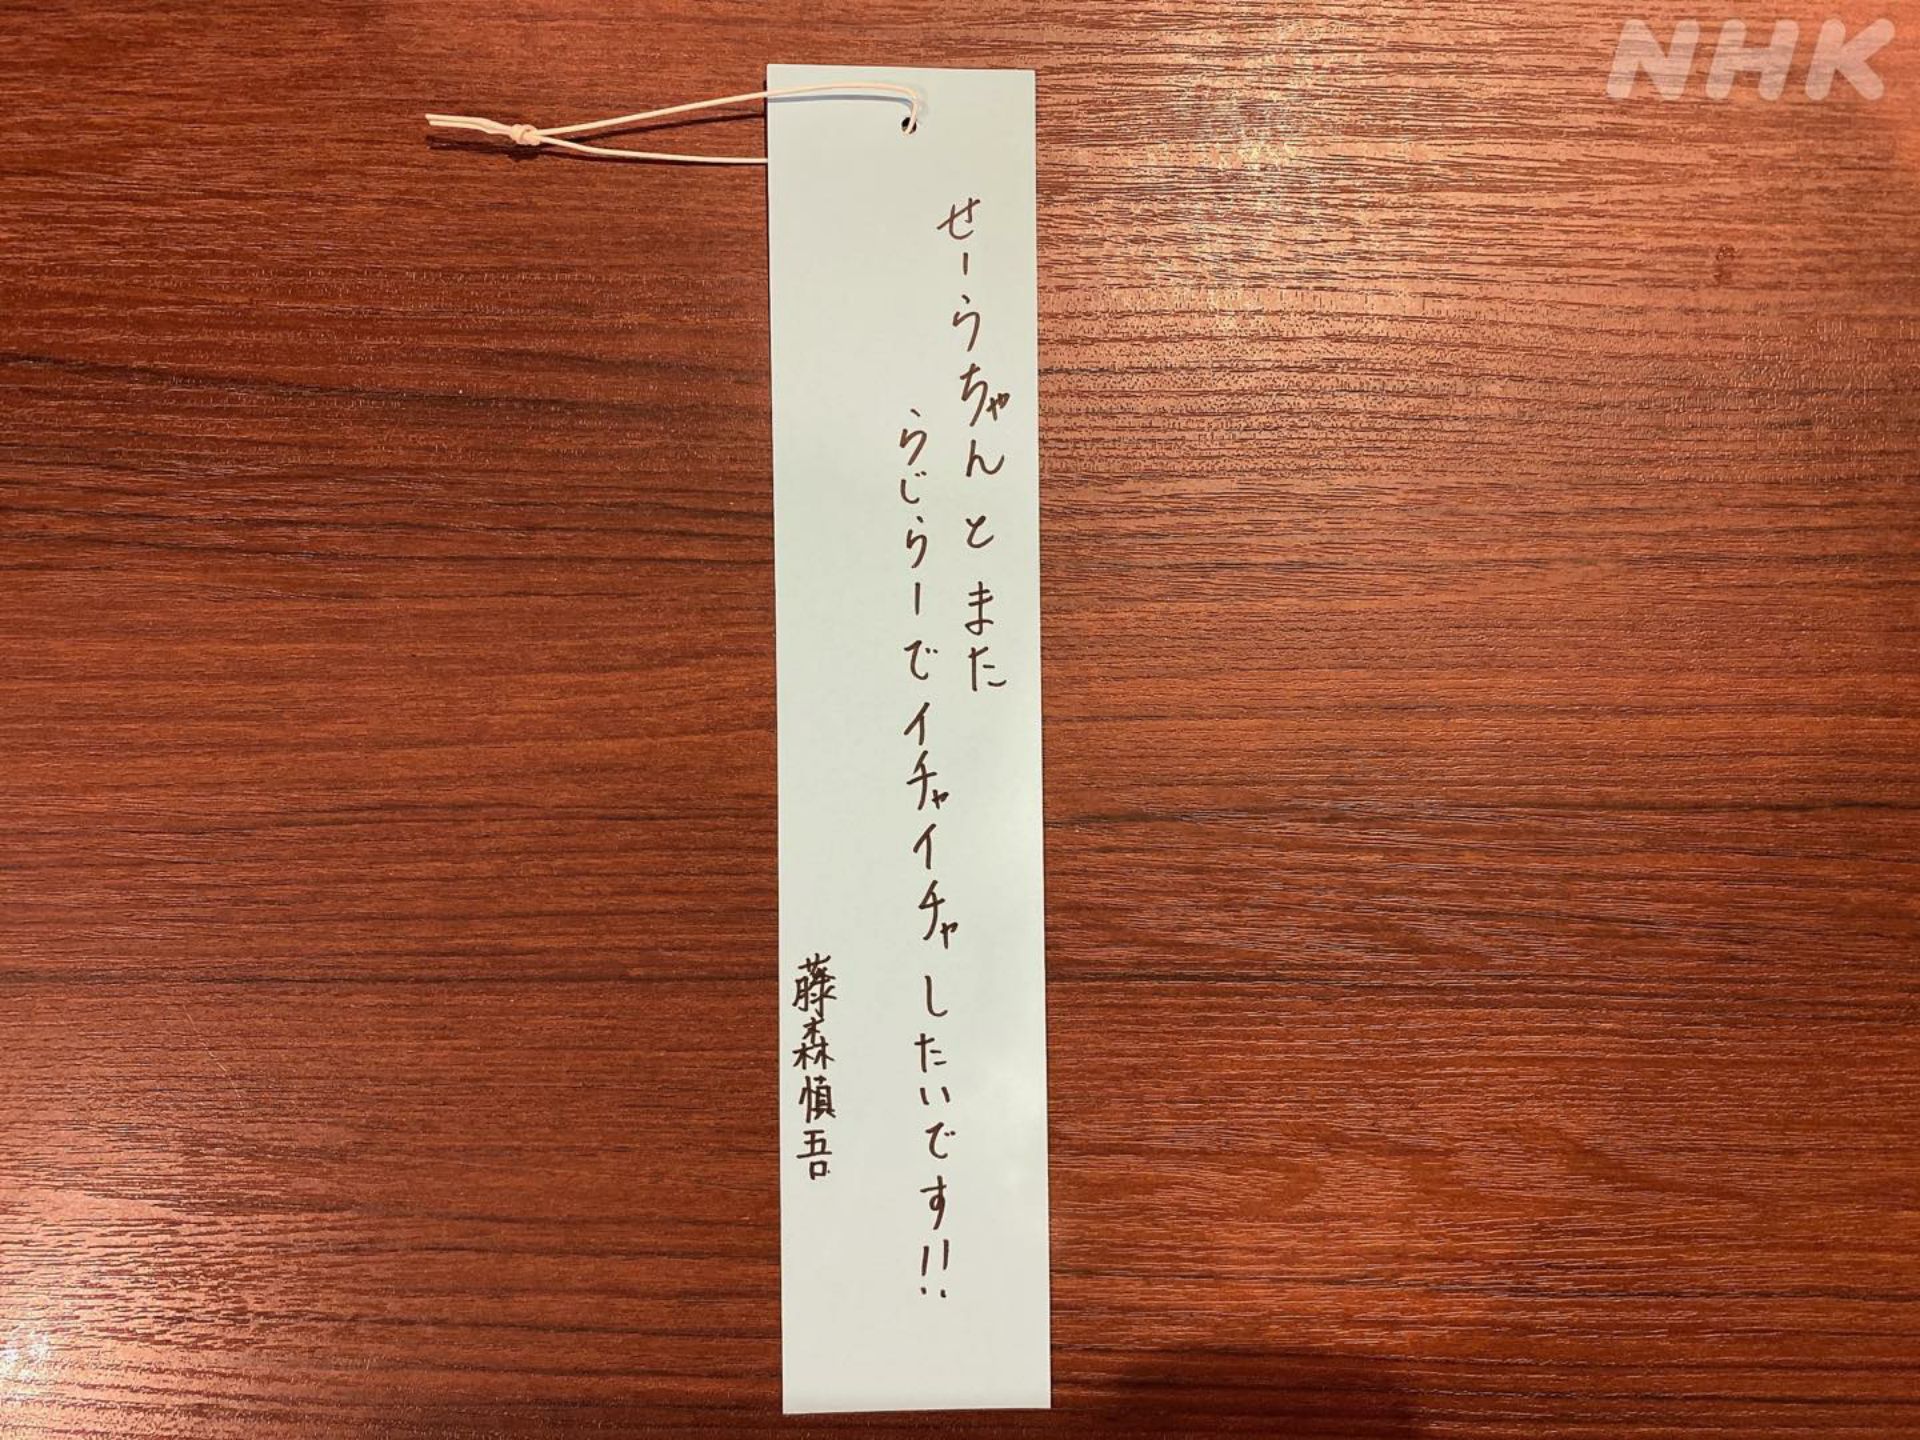 せーらちゃんとまた
らじらーでイチャイチャしたいです!!
藤森慎吾
NHK